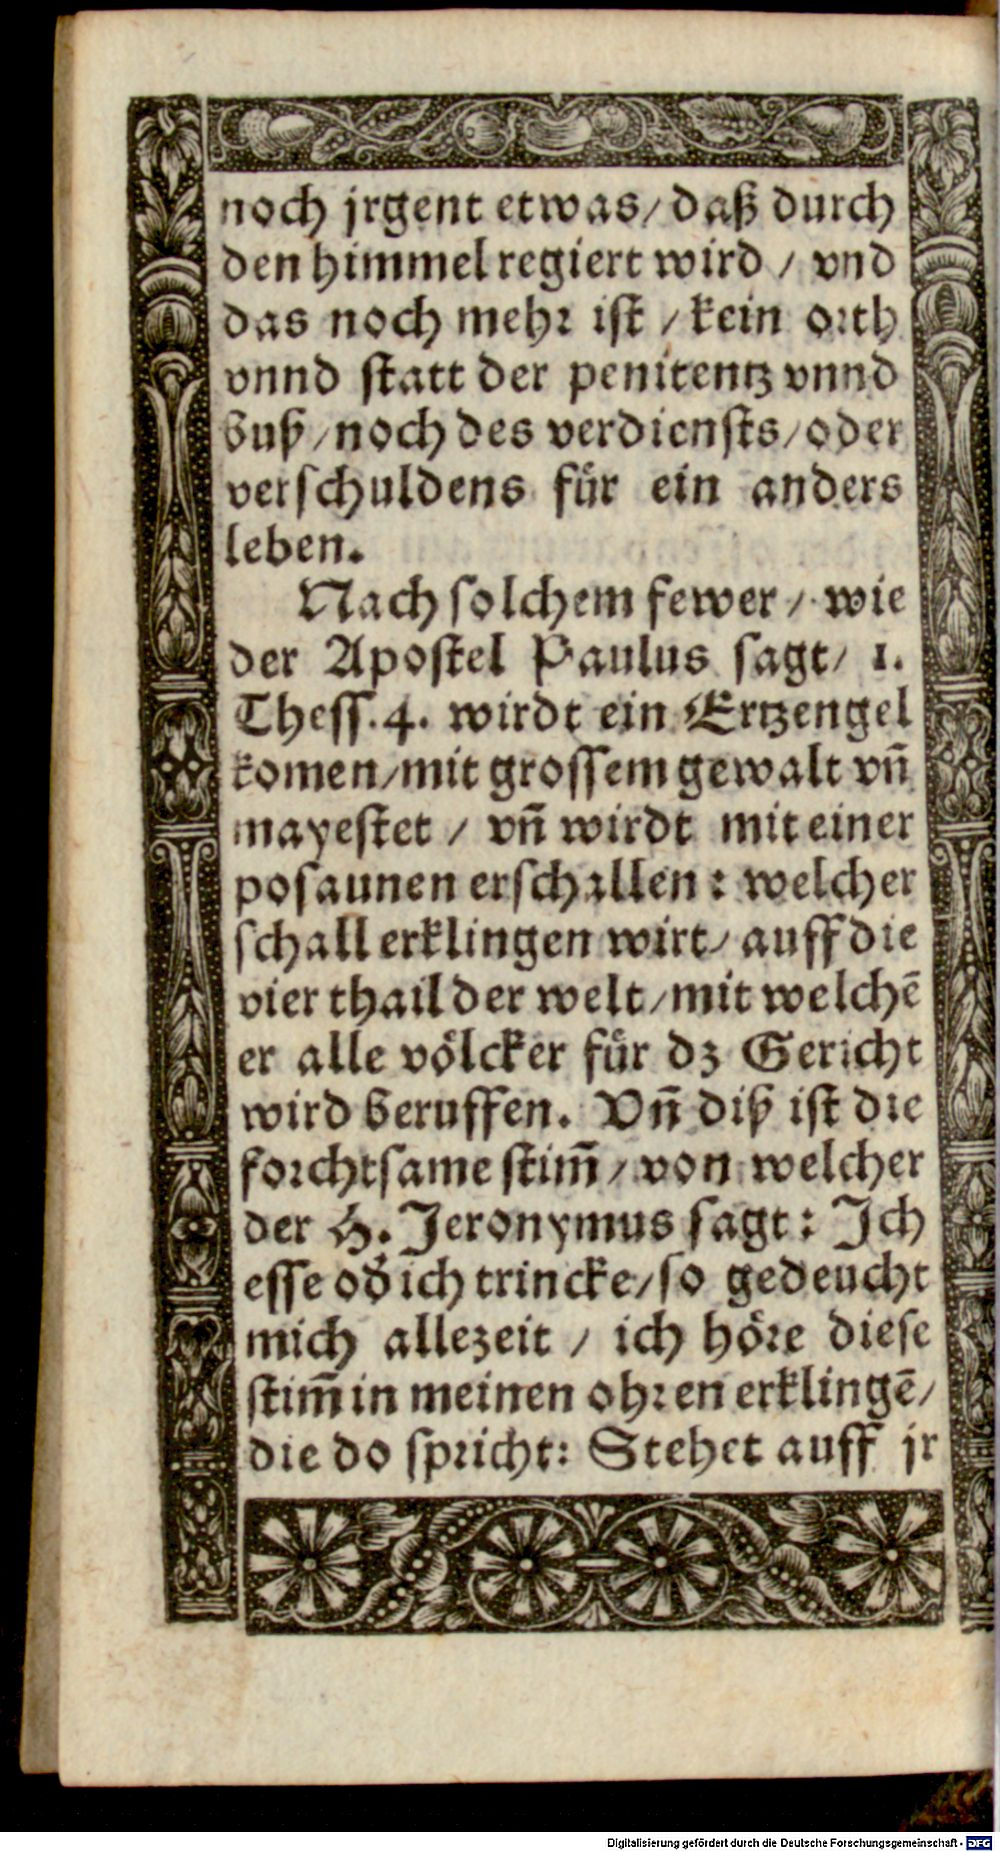 noch jrgent etwas/ daß durch
den himmel regiert wird / vnd
das noch mehr ist / kein orth
vnnd statt der penitentz vnnd
buß / noch des verdiensts / oder
verschuldens für ein anders
leben.
Nach solchem fewer / wie
der Apostel Paulus sagt / 1.
Thess. 4. wirdt ein Ertzengel
komen / mit grossem gewalt vñ
mayestet / vñ wirdt mit einer
posaunen erschallen : welcher
schall erklingen wirt / auff die
vier thail der welt / mit welchē
er alle völcker für dz Gericht
wird beruffen. Vñ diß ist die
forchtsame stim̄ / von welcher
der H. Jeronymus sagt : Ich
esse od̓ ich trincke / so gedeucht
mich allezeit / ich höre diese
stim̄ in meinen ohren erklingē /
die do spricht : Stehet auff jr
Digitalisierung gefördert durch die Deutsche Forschungsgemeinschaft - DFG